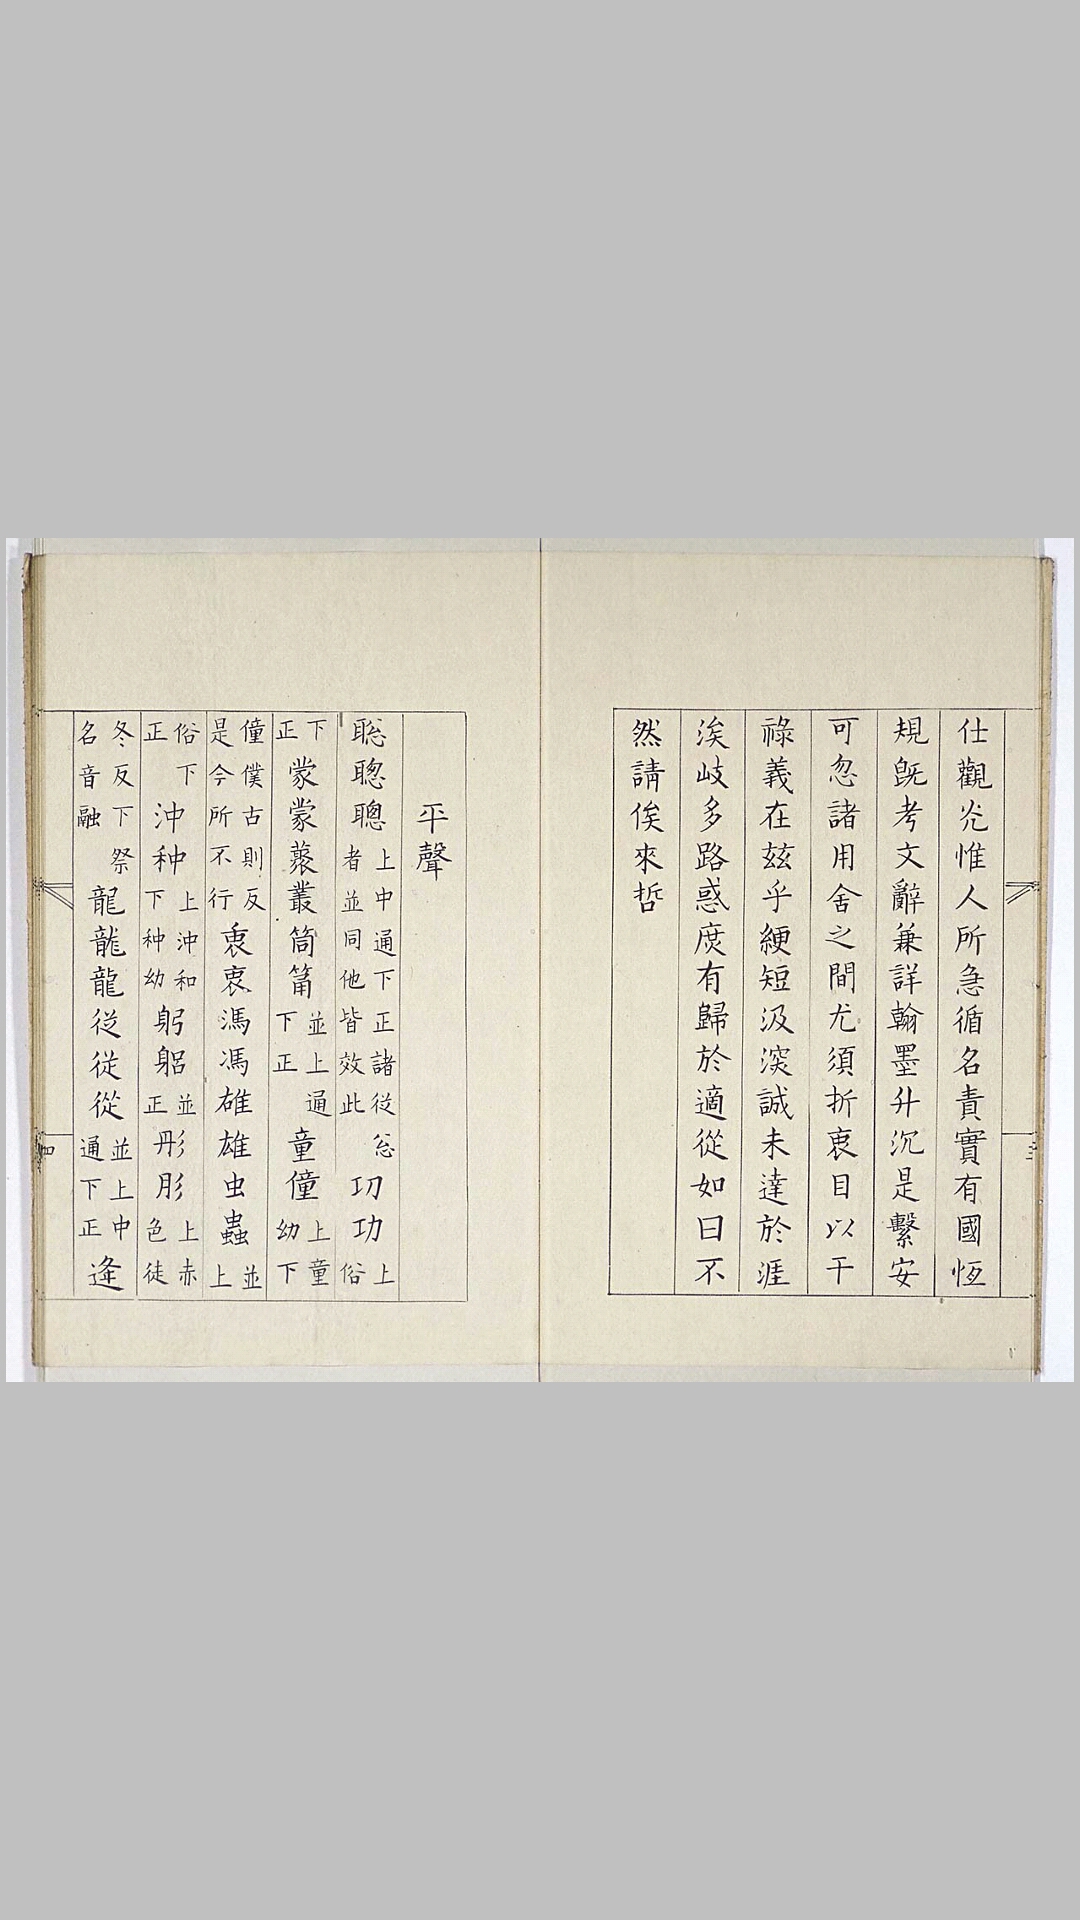 仕觀光惟人所急循名責實有國恆
規旣考文辭兼詳翰墨升沉是繫安
可忽諸用舍之間尤須折衷目以干
祿義在茲乎綆短汲深誠未達於涯
涘岐多路惑庶有歸於適從如曰不
然請俟來哲
三
平聲
聡聦聰上中通下正諸從怱者並同他皆效此㓛功上俗
下正蒙䝉藂叢筒筩並上通下正童僮上童幼下
僮僕古則反是今所不行衷衷馮馮雄雄虫蟲並上
俗下正沖种上沖和下种幼躬躳並正彤肜上赤色徒
冬反下祭名音融龍龍龍従從從並上中通下正逄
四